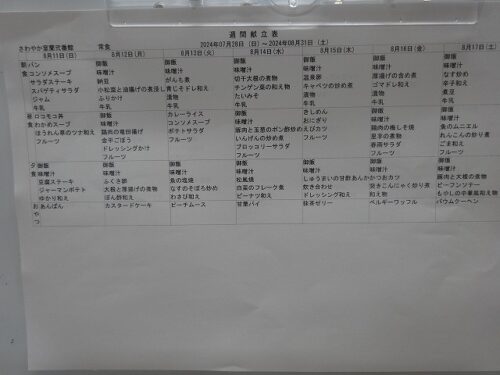 週間献立表
さわやか室蘭弐番館 常食 2024年07月28日（日）～2024年08月31日（土）
8月11日(日) 8月12日(月) 8月13日(火) 8月14日(水) 8月15日(木) 8月16日(金) 8月17日(土)
朝 パン 御飯 御飯 御飯 御飯 御飯 御飯
食 コンソメスープ 味噌汁 味噌汁 味噌汁 味噌汁 味噌汁 味噌汁
サラダステーキ 納豆 がんも煮 切干大根の煮物 温泉卵 厚揚げの含め煮 なす炒め
スパゲティサラダ 小松菜と油揚げの煮浸し 青じそドレ和え チンゲン菜の和え物 キャベツの炒め煮 ゴマドレ和え 辛子和え
ジャム ふりかけ 漬物 たいみそ 漬物 漬物 煮豆
牛乳 牛乳 牛乳 牛乳 牛乳 牛乳 牛乳
昼 ロコモコ丼 御飯 カレーライス 御飯 きしめん 御飯 御飯
食 わかめスープ 味噌汁 コンソメスープ 味噌汁 おにぎり 味噌汁 味噌汁
ほうれん草のツナ和え 鶏肉の竜田揚げ ポテトサラダ 豚肉と玉葱のポン酢炒め えびカツ 鶏肉の梅しそ焼 魚のムニエル
フルーツ 金平ごぼう フルーツ いんげんの炒め煮 フルーツ 里芋の煮物 れんこんの炒り煮
ドレッシングかけ ブロッコリーサラダ 春雨サラダ ごま和え
フルーツ フルーツ フルーツ フルーツ
夕 御飯 御飯 御飯 御飯 御飯 御飯 御飯
食 味噌汁 味噌汁 味噌汁 味噌汁 味噌汁 味噌汁 味噌汁
豆腐ステーキ ふくさ卵 魚の塩焼 松風焼 しゅうまいの甘酢あんかけ かつおカツ 豚肉と大根の煮物
ジャーマンポテト 大根と厚揚げの煮物 なすのそぼろ炒め 白菜のフレーク煮 炊き合わせ 突きこんにゃく炒り煮 ビーフンソテー
ゆかり和え ぽん酢和え わさび和え ピーナツ和え ドレッシング和え 和え物 もやしの中華風和え物
お あんぱん カスタードケーキ ピーチムース 甘栗パイ 抹茶ゼリー ベルギーワッフル バウムクーヘン
や
つ